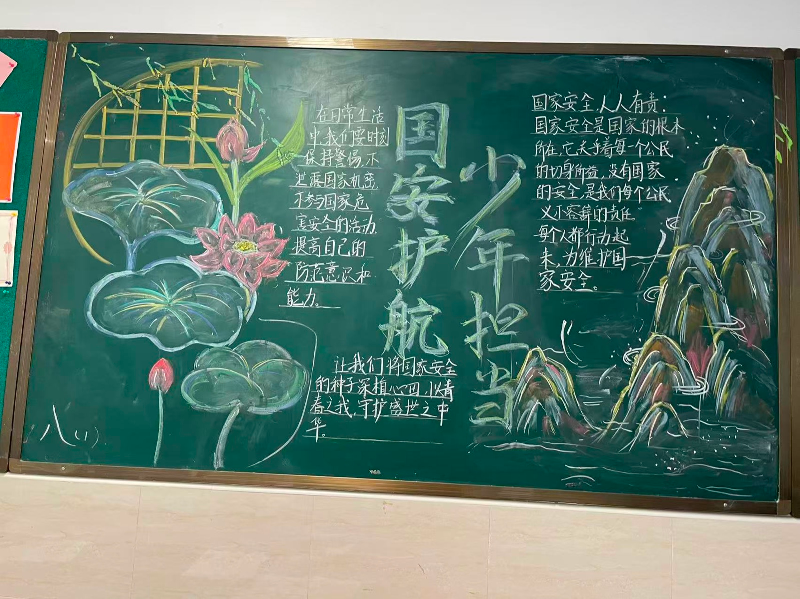 在日常生活
中,我们要时刻
保持警惕,不
泄露国家机密
不参与国家危
害安全的活动
提高自己的
防范意识和
能力。
国安护航
少年担当
国家安全,人人有责:
国家安全是国家的根本
所在,它关乎着每个公民
的切身所益,没有国家
的安全,是我们每个公民
义不容辞的责任
每个人都行动起
来,力维护国
家安全。
让我们将国家安全
的种子深植心田,以青
春之我,守护盛世之中
华。
八(1)